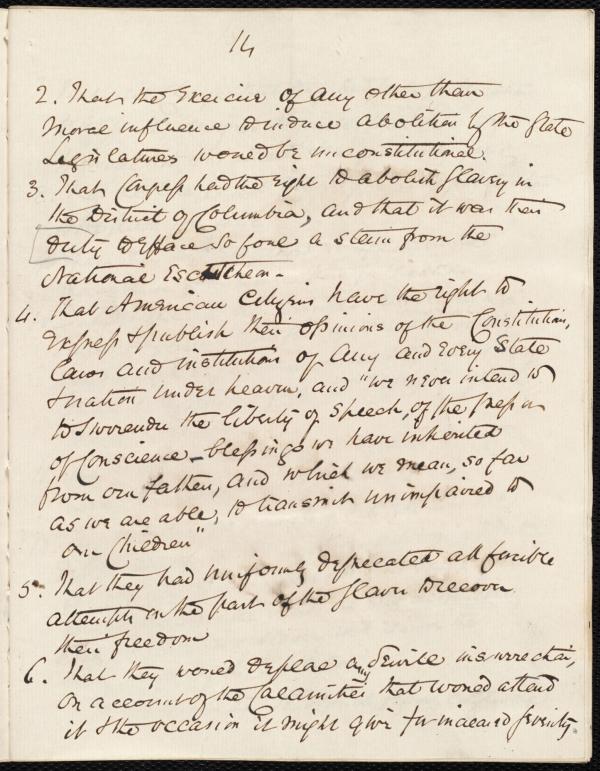 14
2. That the Exercise of any other than
Moral influence to induce abolition by the State
Legislatures would be unconstitutional.
3. That Congress had the right to abolish Slavery in
the District of Columbia, and that it was their
duty to efface so foul a stain from the
National Escutcheon.
4. That American Citizens have the right to
Express & publish their opinions of the Constitutions,
Laws and institutions of any and every State
& nation under heaven, and "we never intend to
to surrender the liberty of Speech, of the press or
of Conscience - blessings we have inherited
from our fathers, and which we mean, so far
as we are able, to transmit unimpaired to
our Children"
5. That they had uniformly deprecated all forcible
attempts on the part of the slaves to recover
their freedom
6. That they would deplore any Servile insurrection,
on account of the Calamities that would attend
it & the occasion it might give for increased severity.